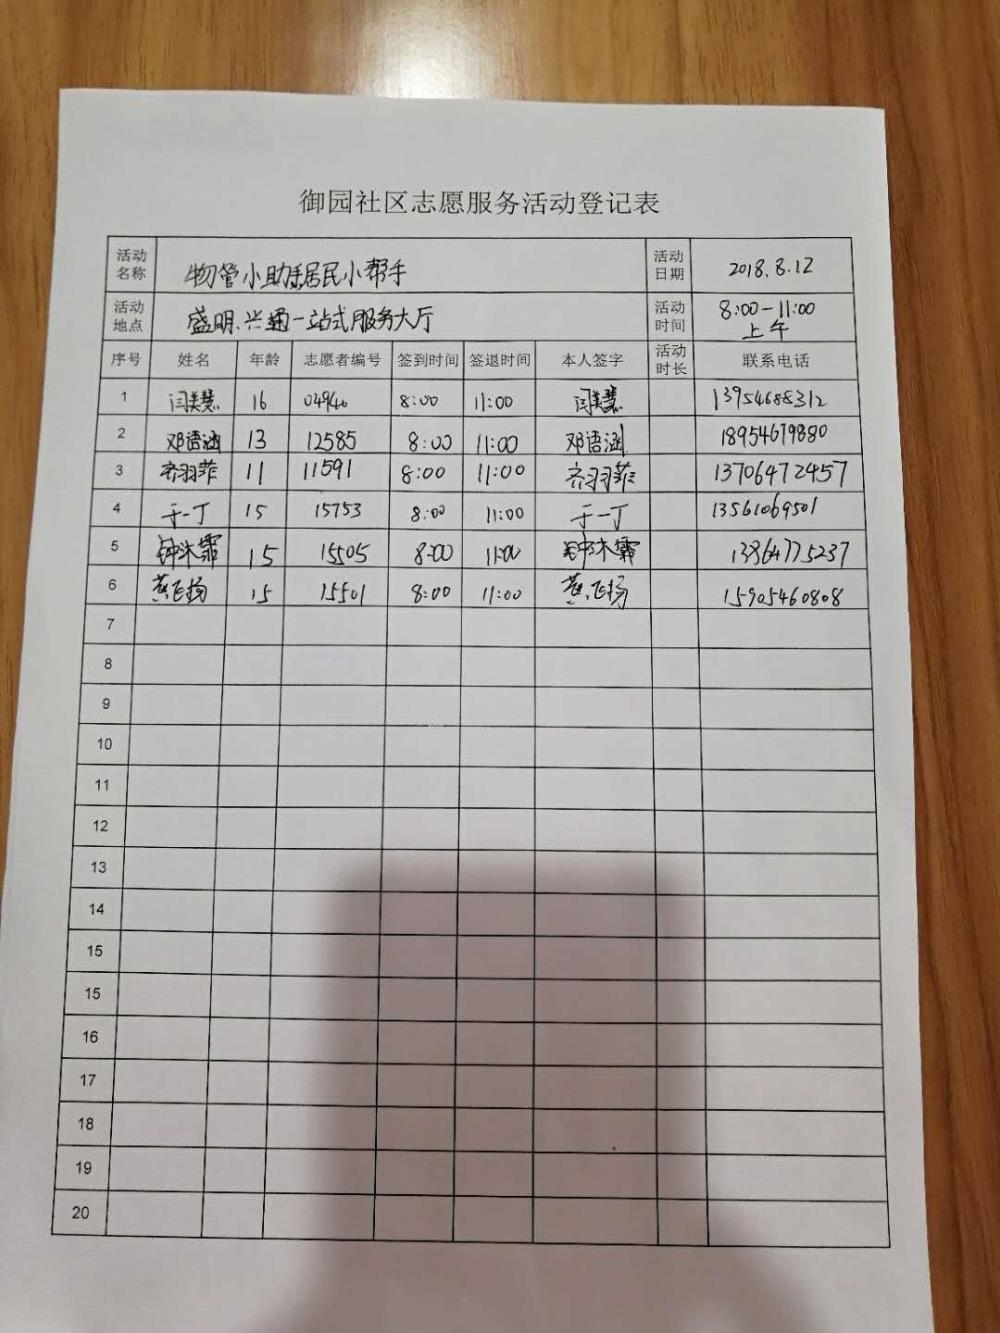 御园社区志愿服务活动登记表
活动名称 物管小助手居民小帮手 活动日期 2018.8.12
活动地点 盛明、兴通一站式服务大厅 活动时间 8:00-11:00 上午
序号 姓名 年龄 志愿者编号 签到时间 签退时间 本人签字 活动时长 联系电话
1 闫美慧 16 8:00 11:00 闫美慧 13954688312
2 邓语涵 13 12585 8:00 11:00 邓语涵 18954679880
3 齐羽菲 11 11591 8:00 11:00 齐羽菲 13706472457
4 于一丁 15 15753 8:00 11:00 于一丁 13561069501
5 钟沐霏 15 15505 8:00 11:00 钟沐霏 13864775237
6 燕飞扬 15 15501 8:00 11:00 燕飞扬 15905460808
7
8
9
10
11
12
13
14
15
15
16
17
18
19
20